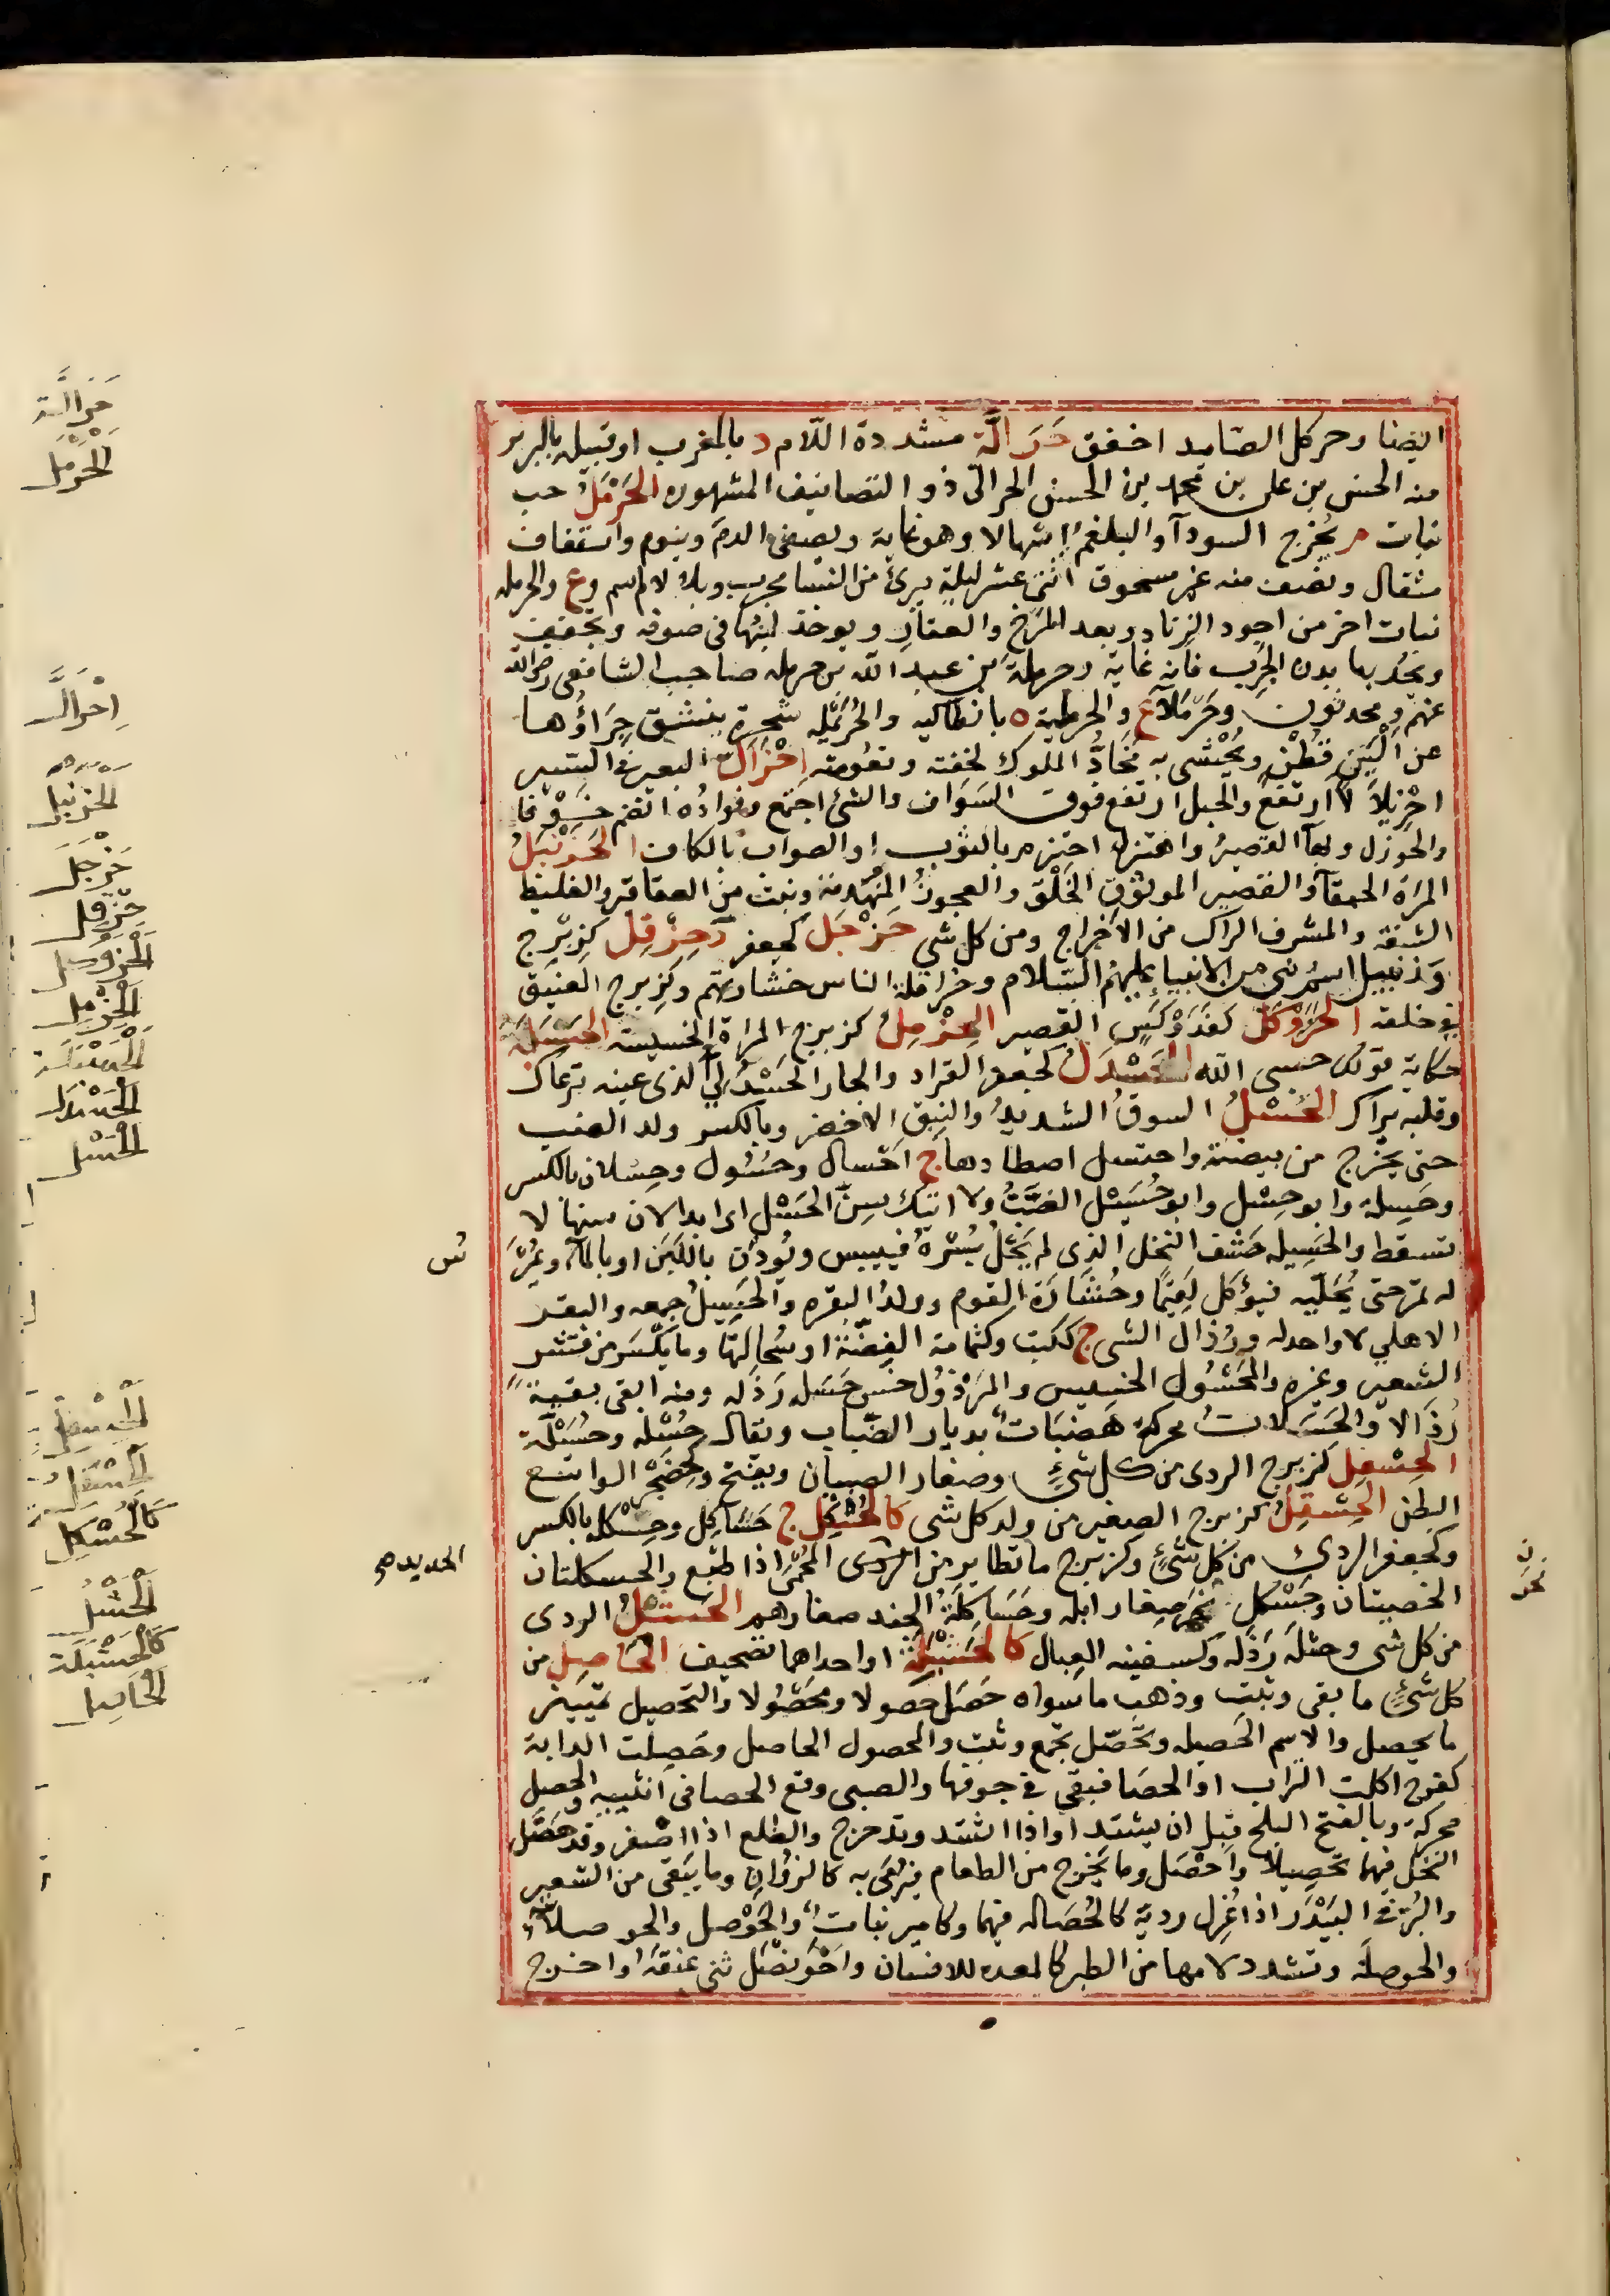 ايضا وحركل الصايد اخفق حَرَالَّة مشددة اللّام د بالمغرب او قبيلة بالبربر
منه الحسن بن على بن محمد بن الحسن الحرالّى ذو التصانيف المشهورة الحَرْمَلُ حب
نبات م يُخرج السودآ والبلغم اسهالا وهو غاية ويصفى الدم وينوم واستفاف
مثقال ونصف منه غير مسحوق اثنى عشر ليلة يبرئ من النسا مجرب وبلا لام اسم وع والحرملة
نبات اخر من اجود الزناد بعد المَرْخ والعفار ويوخذ لبنها فى صوفة ويجفف
ويحك بها بدن الجَرِب فانه غاية وحرملة بن عبد الله بن حرملة صاحب الشافعى رضى الله
عنهم ومحدثون وحَرْمَلاَء ع والحرملية ة بانطاكية والحُرَيْمِلة شجرة ينشق جِرَاؤُها
عن اَلْيَنِ قُطْنٍ ويُحْشى به مَخَادُّ الملوك لخفته ونعُومته اِحْزَاَلَّ البعير فى السير
احْزِيلاَلاً ارتفع والجبل ارتفع فوق السَّرَاب والشئ اجتمع وفوادُه انضم خَوْفا
والحَوزل القصير واحتزل احتزم بالثوب او الصواب بالكاف الحَزَنْبَلُ
المرأة الحمقآ والقصير الموثوق الخَلْق والعجوزُ المنهَدِمة ونبت من العقاقير والغليظ
الشفة والمشرف الراكب من الاحراج ومن كل شى حَزْجَل كجعفر د حِزْقِل كزِبْرِج
وزنبيل اسمُ نبى من الانبيا عليهم السّلام وحزاقلة الناس خشارتهم وكزبرج الضيق
فى خلقه الحَزَوْكَل كفَدَوْكَسٍ القصير الحِزْمِلُ كزبرج المرأة الخسيسة الحَسْبَلَة
حكاية قولك حسبى الله الحَسْدَلُ كجعفر القراد والجار الحَسْدَلِيُّ الذى عينه ترعاك
وقلبه يراك الحَسْلُ السوقُ الشديدُ والنبق الاخضر وبالكسر ولد الضب
حين يخرج من بيضته واحتسل اصطادها ج احسال وحُسُول وحِسْلان بالكسر
وحِسَلة وابو حِسْل وابو حُسَيْل الضبُّ ولا اتيك سِنَّ الحِسْل اى ابدا لان سنها لا
تسقط والحَسِيلة حَشَف النخل الذى لم يَحْلُ بُسْرُهُ فييبس ويُودَن باللَبَن او بالمآ ويُمرَّ
له تمر حتى يُحَلّيه فيؤكل لَقِيما وحُشَارَة القوم وولدُ البقرة والحَسِيلُ جمعه والبقر
الاهلي لا واحد له ورُذال الشى ج ككتب وكثمامة الفِضّة او سُحَالتها وما تكسّر من قشر
الشعير وغيره والمَحْسُول الخسيس والمَرْذُول حسن حَسَله رَذَله ومنه ابقى بقيةً
رُذالا والحَسَلاتُ محركة هَضَبَاتٌ بديار الضّباب ويقال حِسْلَة وحُسَيْلَة
الحِسْفِل كزبرج الردى من كل شئٍ وصغار الصبيان ويفتح وكحِضَجْرٍ الواسع
البطن الحِسْقِلُ كزبرج الصغير من ولد كل شى كالحِسْكِل ج حَسَاكِل وحِسْكلة بالكسر
وكجعفر الردى من كل شئٍ وكزبرج ما تطاير من الردى المُحْمَى اذا طبع والحسكلتان
الخصيتان وحَسْكَل نحر صغار ابله وحَسَاكِلَةُ الجند صغارهم الحَسْلُ الردى
من كل شى وحشله رَذَله وكسفينه العيال كالحَشْبَلَةِ او احداهما تصحيف الحَاصِل من
كل شئٍ ما بقى وثبت وذهب ما سواه حَصَل حصولا ومحصُولا والتحصيل تمييز
ما يحصل والاسم الحصيلة وتحَصّل تجمع وثبت والمحصول الحاصل وحَصِلت الدابة
كفرح اكلت التراب او الحصَا فبقى فى جوفها والصبى وقع الحصا فى انثييه والحصل
محركة وبالفتح البلح قبل ان يشتد او اذا اشتد وتدحرج والطلع اذا اصفر وقد حصّل
النخل فيهما تحصيلا واحصل وما يَخرج من الطعام فيرمَى به كالزوان وما يبقى من الشعير
والبُرّ فى البَيْدَر اذا عُزِل رديّه كالحُصَاله فيهما وكامير نبات والحَوْصل والحوصلاء
والحوصلَة وتشدد لامها من الطير كالمعده للانسان واحْوَنْصَل ثنى عنقه او اخرج
حَرَالَّة
الحَرْمَل
اِحْزَاَلَّ
الحزنبل
حَزْجَل
حِزْقِل
الحزوكل
الحِزْمِل
الحسبلة
الحَسْدَلُ
الحسل
الحِسْفِل
الحِسْقِلُ
كالحِسْكِل
الحَشْلُ
كالحَشْبَلَة
الحَاصِل
الحديد صح